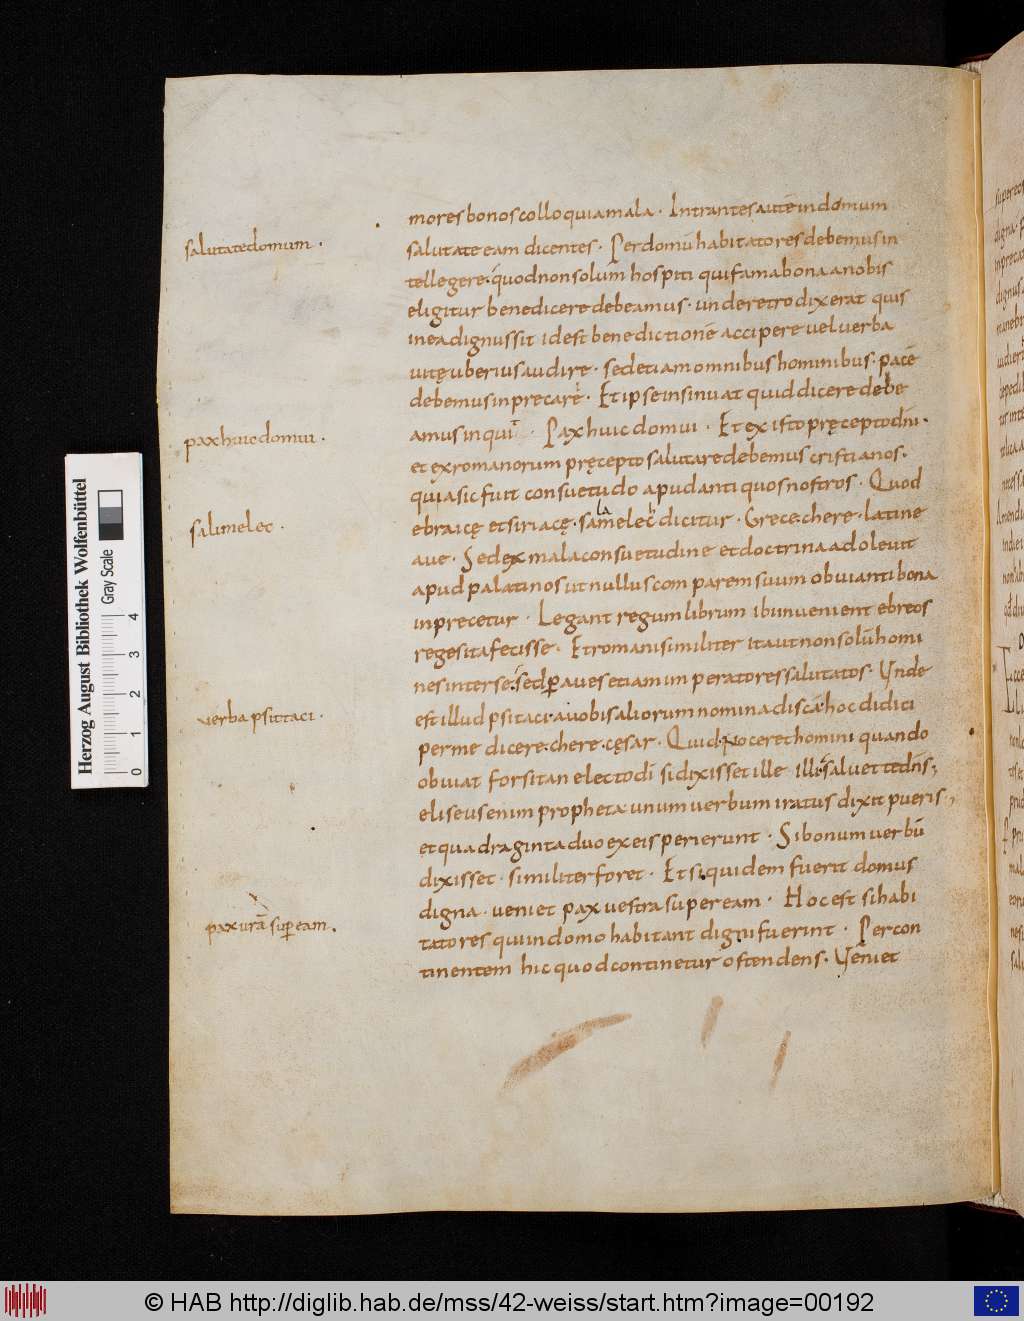 mores bonos colloquia mala · Intrantes autē in domum
salutate domum ·
salutate eam dicentes · Per domū habitatores debemus in
tellegere · quod non solum̄ hospiti qui fama bona a nobis
eligitur benedicere debeamus · unde retro dixerat quis
in ea dignus sit id est benedictionē accipere vel verba
uitę uberius audire · sed etiam omnibus hominibus · pacē
debemus inprecare · Et ipse insinuat quid dicere debe
pax huic domui ·
amus inqui · Pax huic domui · Et ex isto pręcepto dn̄i ·
et ex romanorum pręcepto salutare debemus cristianos ·
quia sic fuit consuetudo apud antiquos nostros · Quod
salimelec ·
ebraicę et siriacę · samelec dicitur · Grece · chere · latine
la h
aue · Sed ex mala consuetudine et doctrina adoleuit
apud palatinos ut nullus comparem suum obuianti bona
inprecetur · Legant regum librum ibi inuenient ebreos
reges ita fecisse · Et romani similiter ita ut non solū homi
nes inter se · sed ꝑ aues etiam imperatores salutatos · Unde
verba psittaci ·
est illud psitaci a uobis aliorum nomina discā hoc didici
per me dicere · chere · cęsar · Quid nocere homini quando
obuiat forsitan electo dī si dixisset ille illi saluet te dn̄s ;
eliseus enim propheta unum uerbum iratus dixit pueris ·
et quadraginta duo ex eis perierunt · Si bonum uerbū
dixisset · similiter foret · Et siquidem fuerit domus
pax ur̄a suꝑ eam .
digna · ueniet pax uestra super eam · Hoc est si habi
tatores qui in domo habitant digni fuerint · Per con
tinentem hic quod continetur ostendens · Ueniet
Herzog August Bibliothek Wolfenbüttel
Gray Scale
0 1 2 3 4
© HAB http://diglib.hab.de/mss/42-weiss/start.htm?image=00192